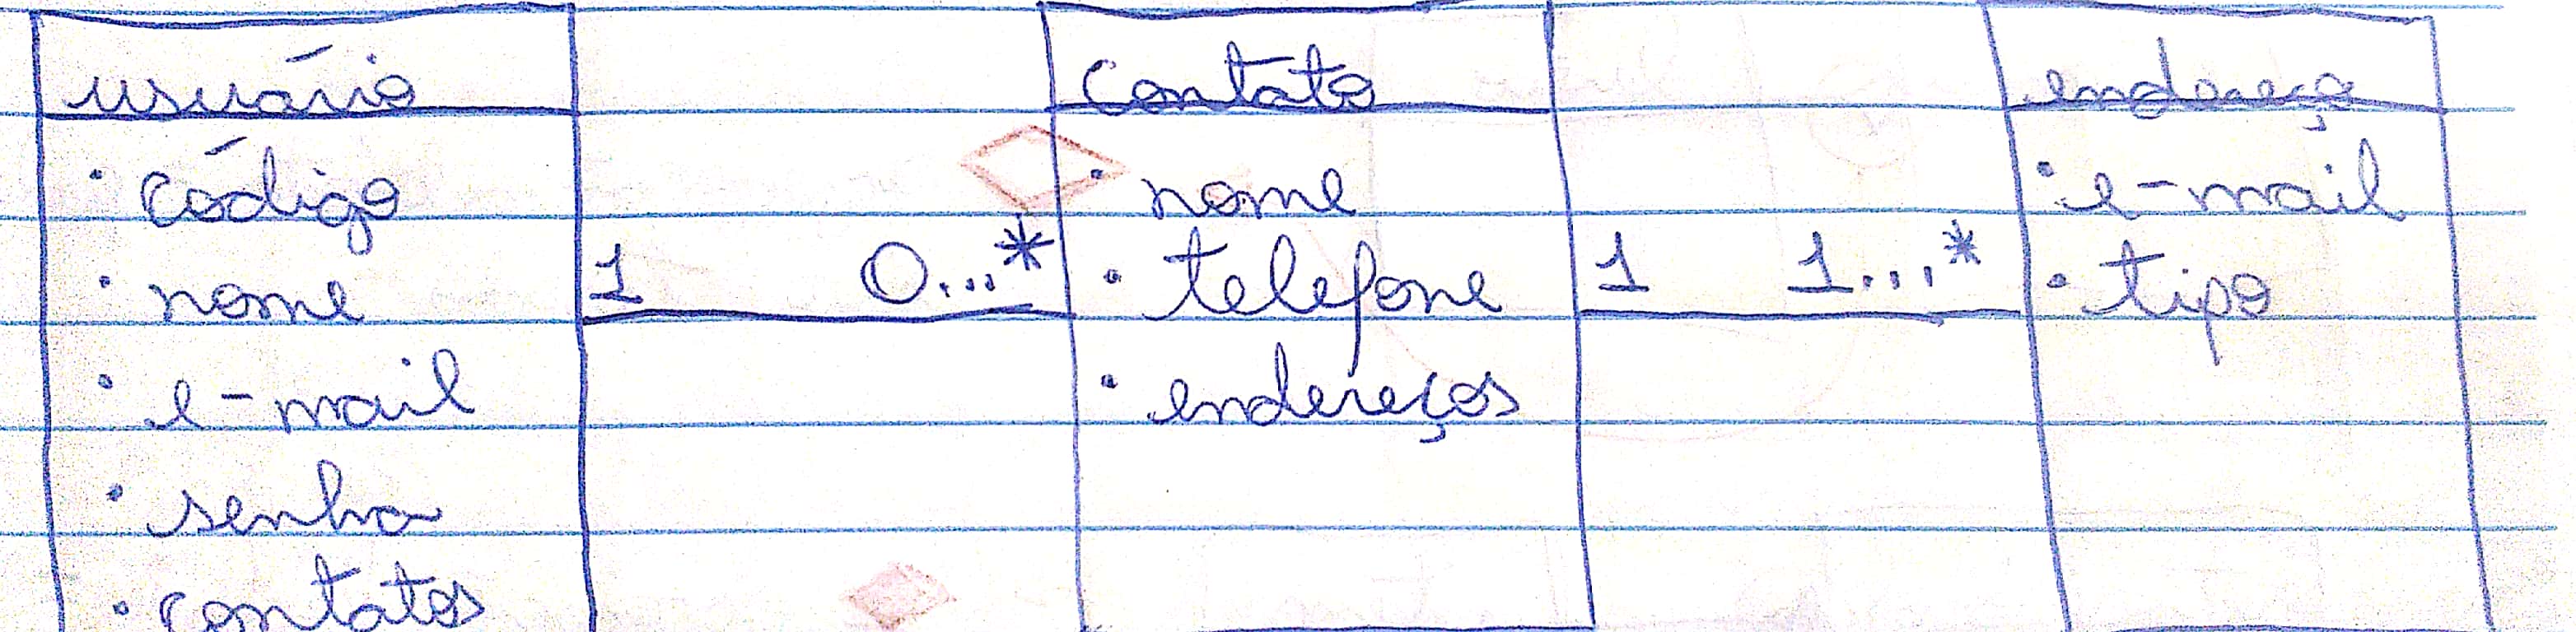 usuário
· código
· nome
· e-mail
· senha
· contatos
1 0...*
contato
· nome
· telefone
· endereços
1 1...*
endereço
· e-mail
· tipo